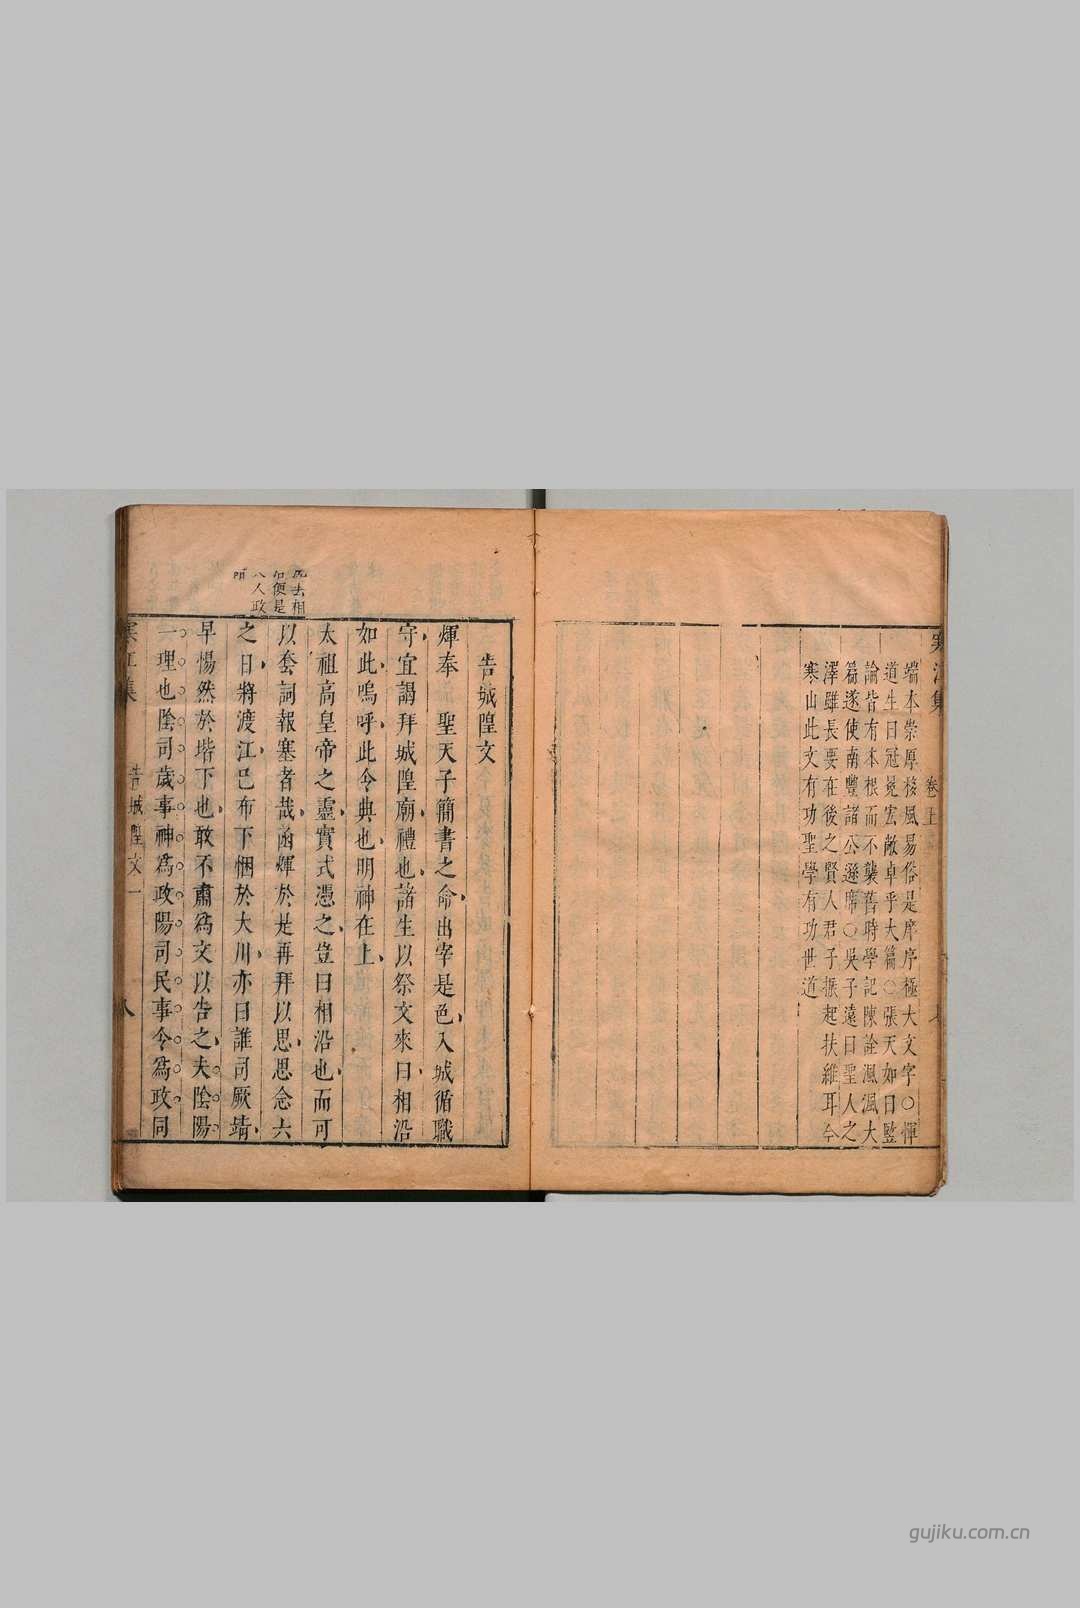 卷五
端本崇厚移風易俗是序序極大文字○惲
道生曰冠冕宏敞卓乎大篇○張天如曰監
論皆有本根而不襲舊時學記陳詮渢渢大
篇遂使南豐諸公遜席○吳子遠曰聖人之
澤雖長要在後之賢人君子振起扶維耳今
寒山此文有功聖學有功世道
告城隍文
煇奉 聖天子簡書之命出宰是邑入城循職
守宜謁拜城隍廟禮也諸生以祭文來曰相沿
如此嗚呼此令典也明神在上
太祖高皇帝之靈實式憑之豈曰相沿也而可
以套詞報塞者哉函煇於是再拜以思思念六
之日將渡江已布下悃於大川亦曰誰司厥靖
早惕然於堦下也敢不肅爲文以告之夫陰陽
一理也陰司歲事神爲政陽司民事令爲政同
去相
便是
人政
告城隍文一
八